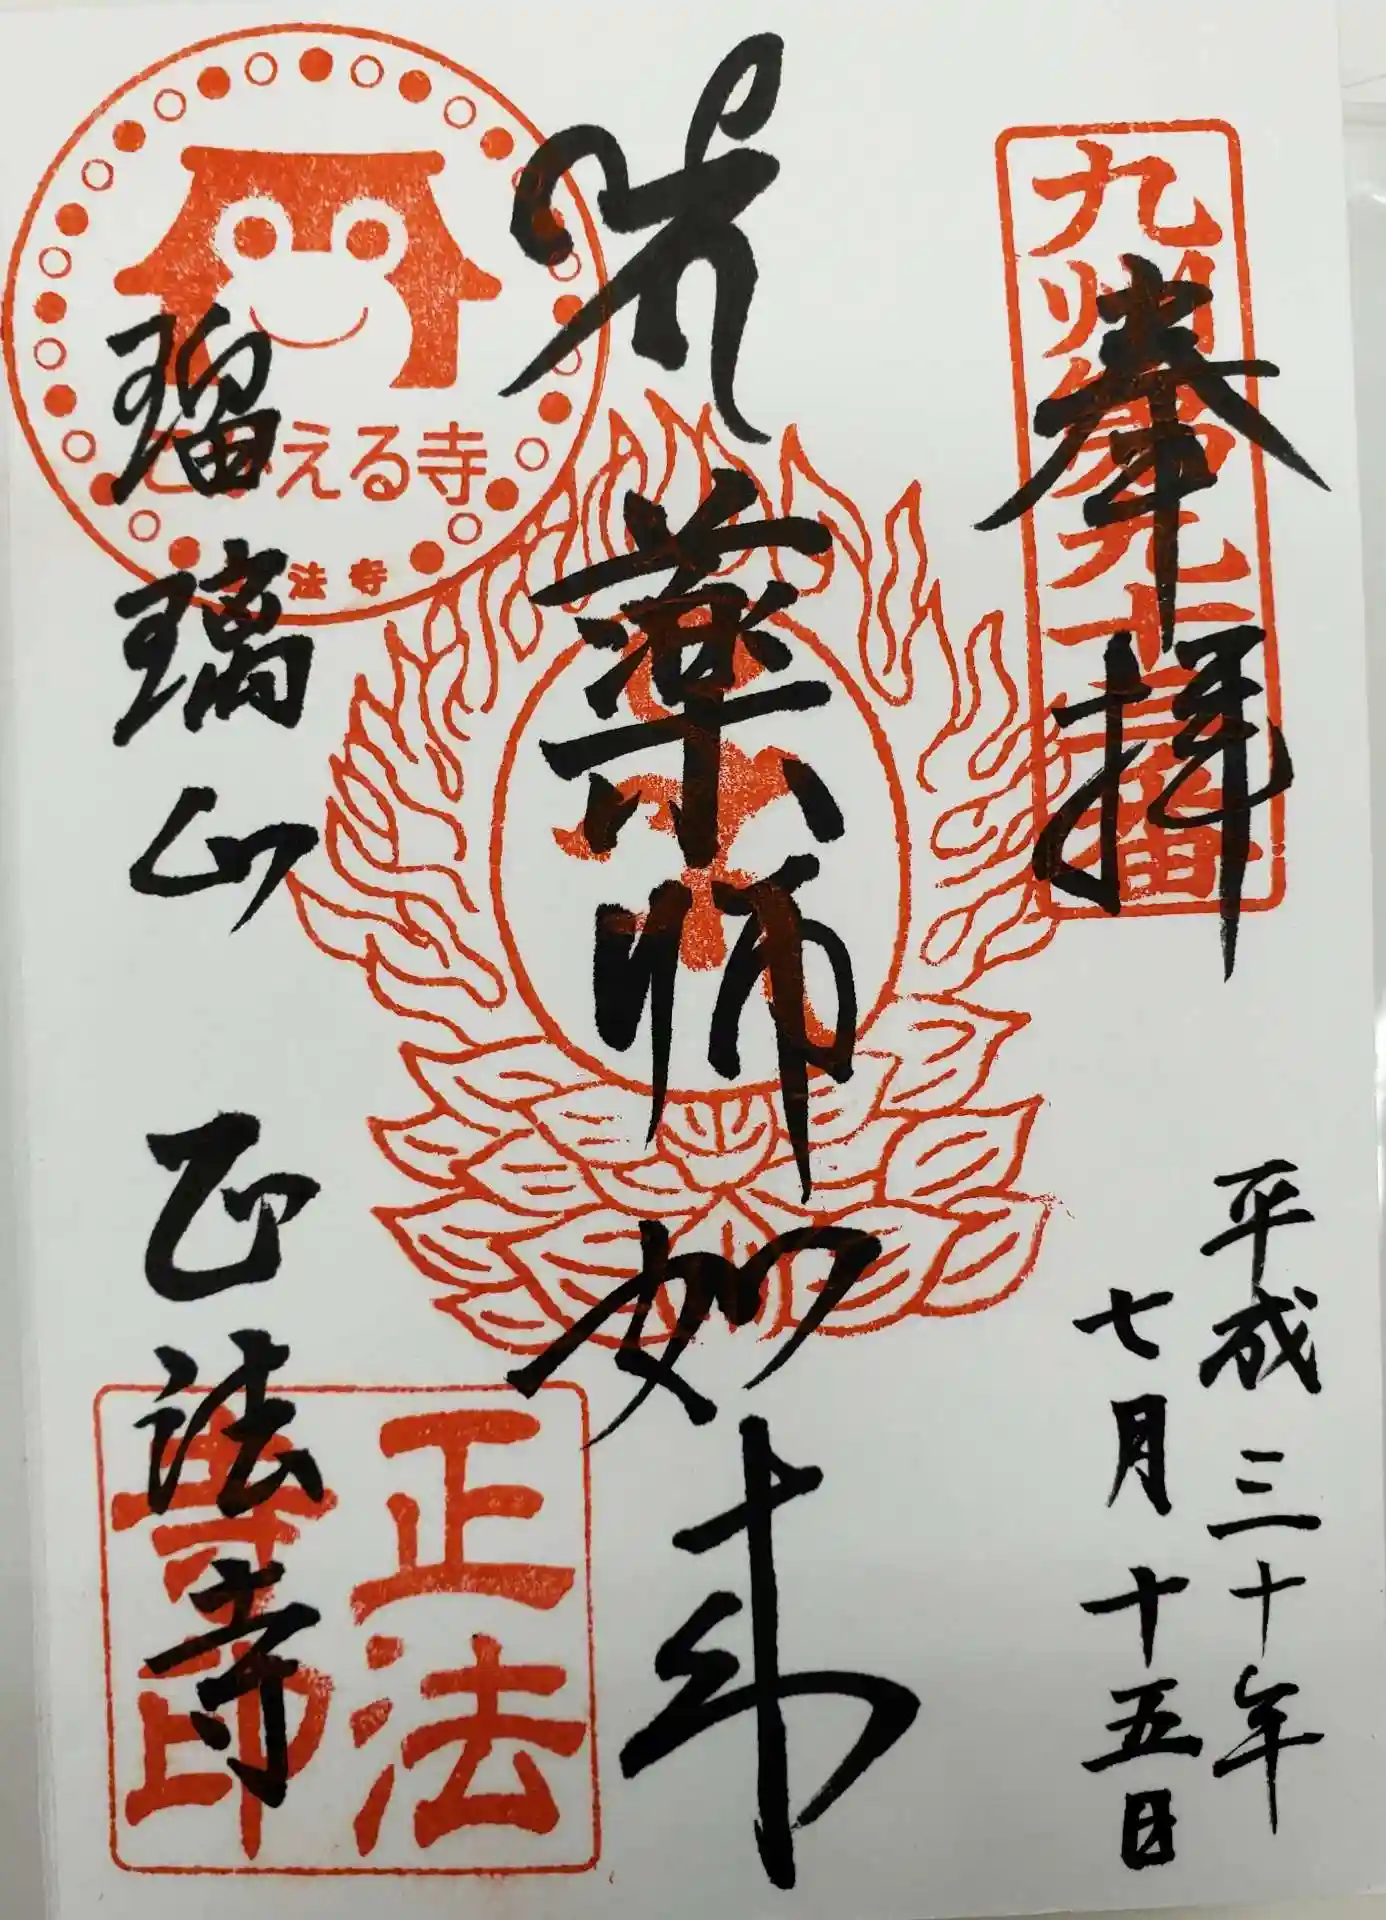 奉拝
九州第九十三番
平成三十年
七月十五日
薬師如来
瑠璃山
正法寺
かえる寺
法寺
正法
寺印